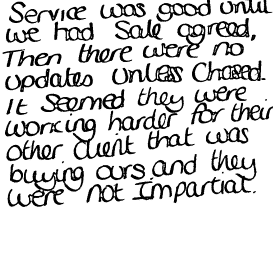 Service was good until
we had Sale agreed,
Then there were no
updates unless Chased.
It Seemed they were
working harder for their
other client that was
buying ours and they
were not Impartial.